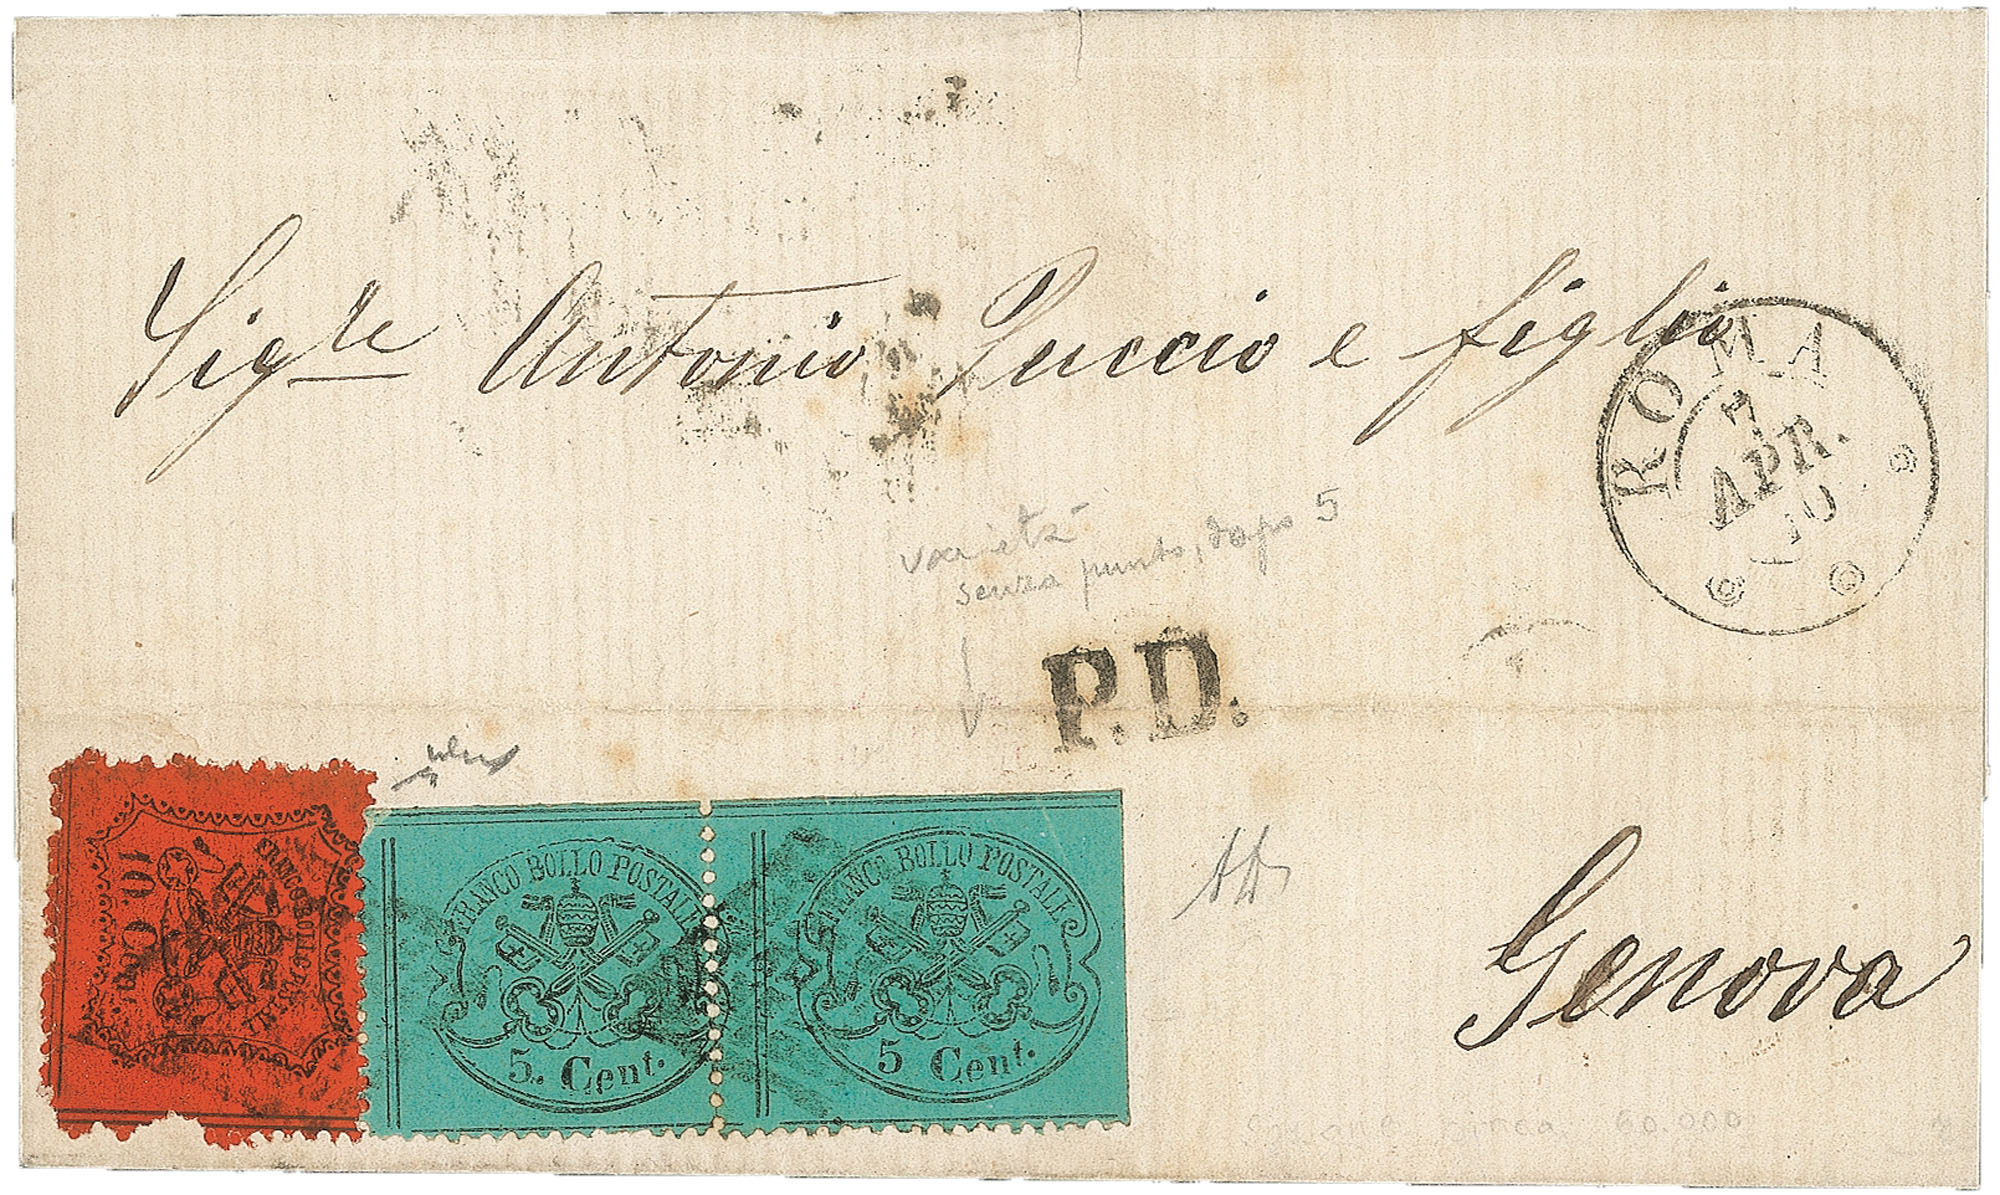 Sigre Antonio Puccio e figlio
ROMA
7
APR.
70
varietà
senza punto, dopo 5
P.D.
FRANCO BOLLO POSTALE
10 Cent.
FRANCO BOLLO POSTALE
5. Cent.
FRANCO BOLLO POSTALE
5 Cent.
Genova
60.000